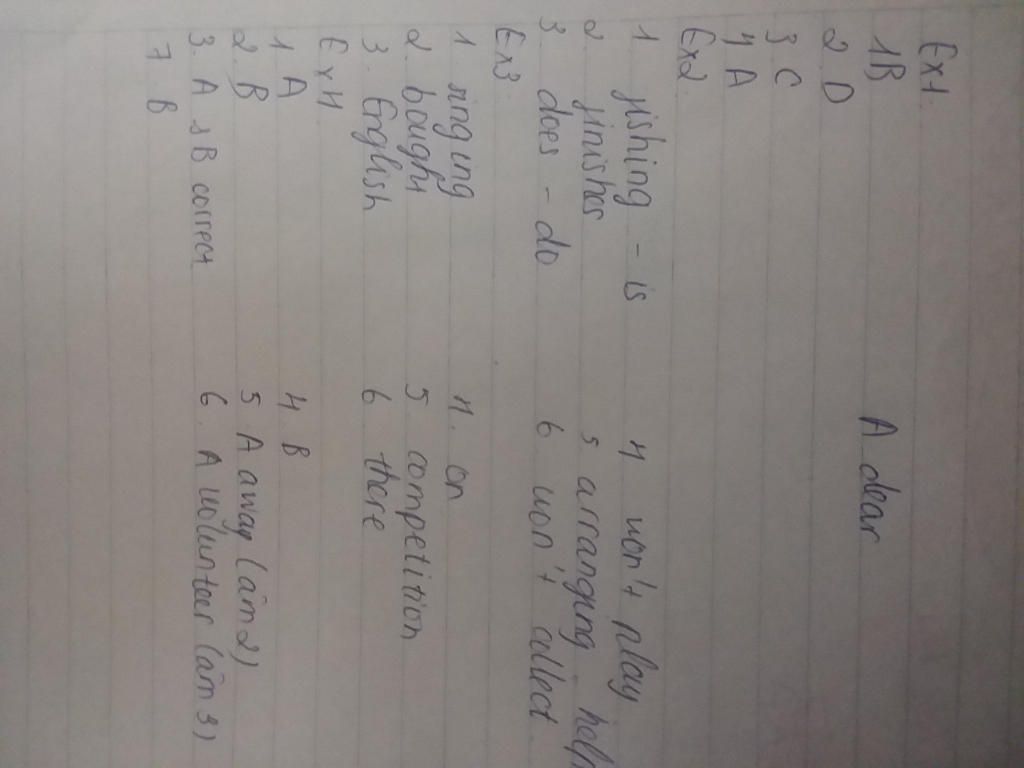 Ex1.
1B A dear
2. D
3 C
4 A
Ex2.
1 fishing - is 4 won't play
2. finishes 5 arranging help
3. does - do 6 won't collect.
Ex3.
1. singing 4. on
2. bough 5. competition
3. English 6 there
Ex4
1 A 4. B
2. B 5 A away (âm 2)
3. A sB correct 6. A volunteer (âm 3)
7. B